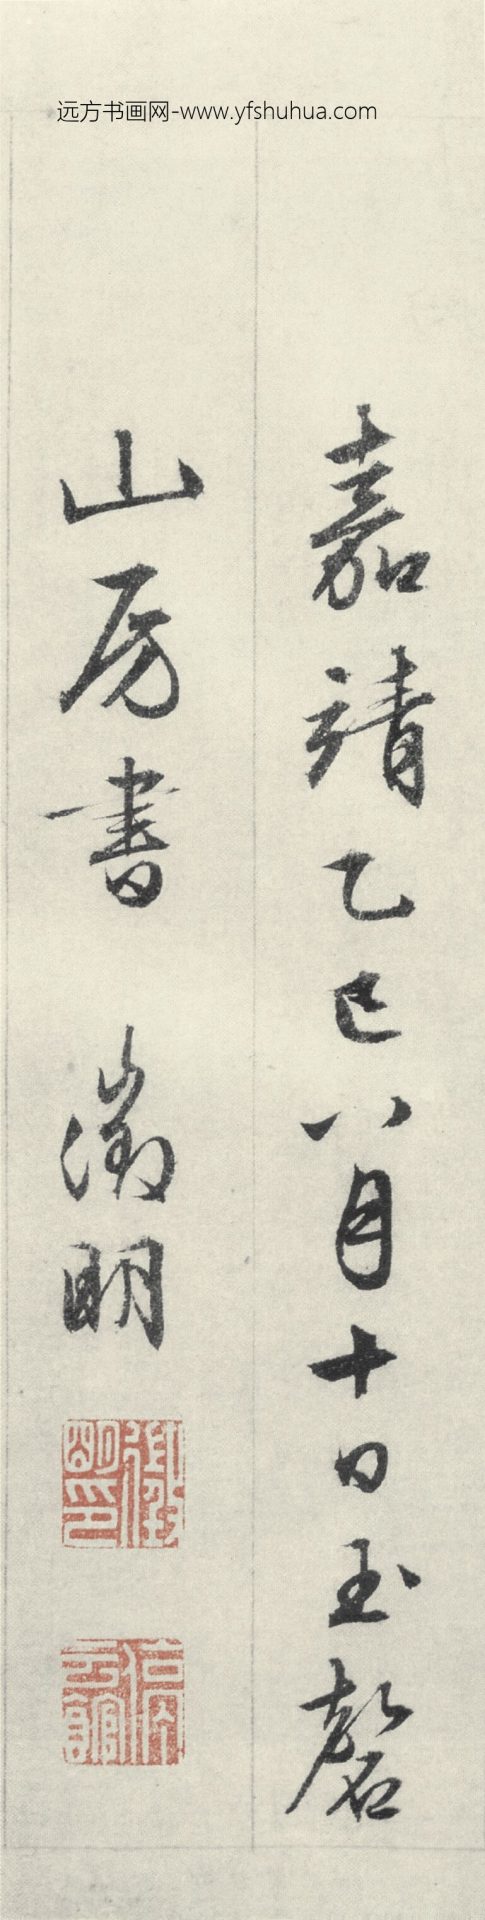 远方书画网-www.yfshuhua.com
嘉靖乙巳八月十日玉磬
山房書 徵明
徵明印
停雲館